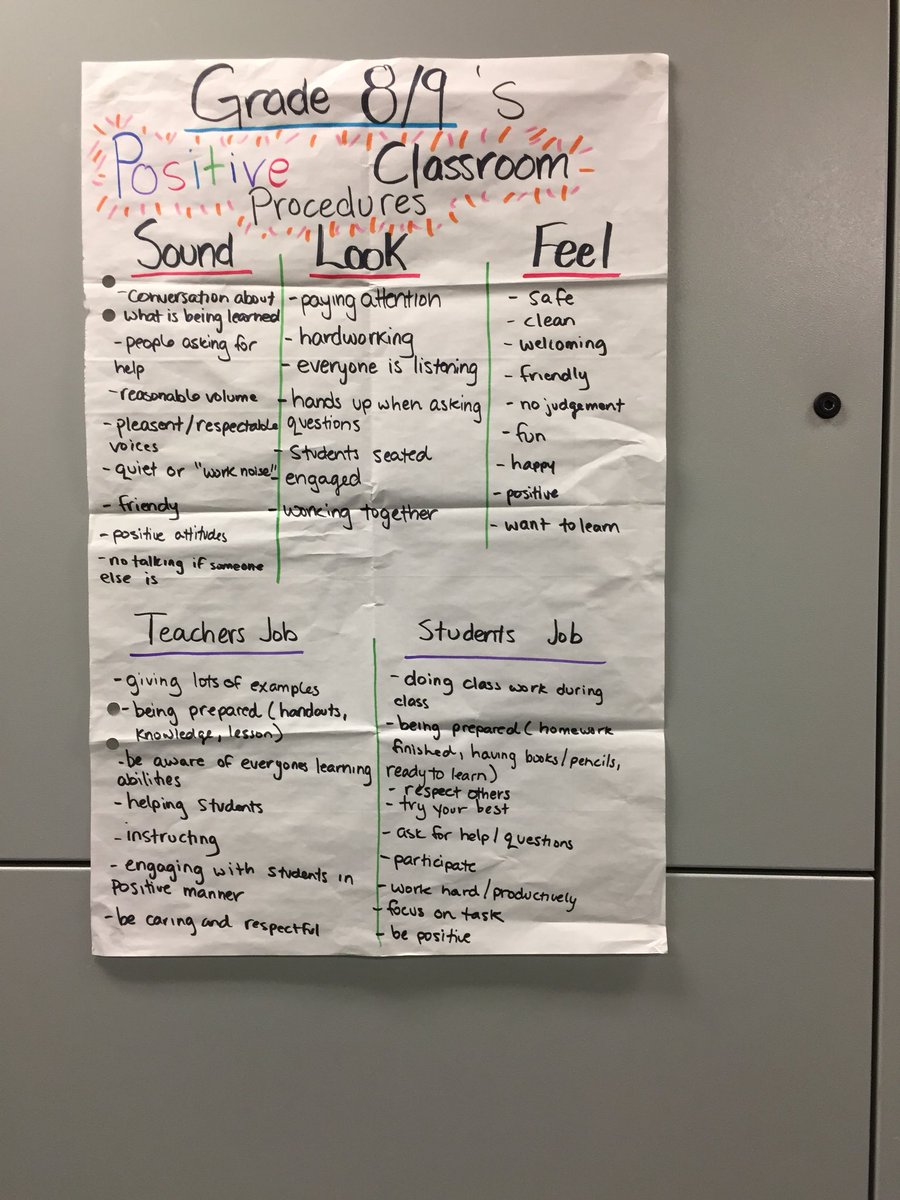 Grade 8/9's
Positive Classroom
Procedures
Sound
- Conversation about
what is being learned
- people asking for
help
- reasonable volume
- pleasent/respectable
voices
- quiet or "work noise"
- friendy
- positive attitudes
- no talking if someone
else is
Look
- paying attention
- hardworking
- everyone is listening
- hands up when asking
questions
- Students seated
- engaged
- working together
Feel
- safe
- clean
- welcoming
- friendly
- no judgement
- fun
- happy
- positive
- want to learn
Teachers Job
- giving lots of examples
- being prepared (handouts,
knowledge, lesson)
- be aware of everyones learning
abilities
- helping students
- instructing
- engaging with students in
positive manner
- be caring and respectful
Students Job
- doing class work during
class
- being prepared (homework
finished, having books/pencils,
ready to learn)
- respect others
- try your best
- ask for help/questions
- participate
- work hard/productively
- focus on task
- be positive